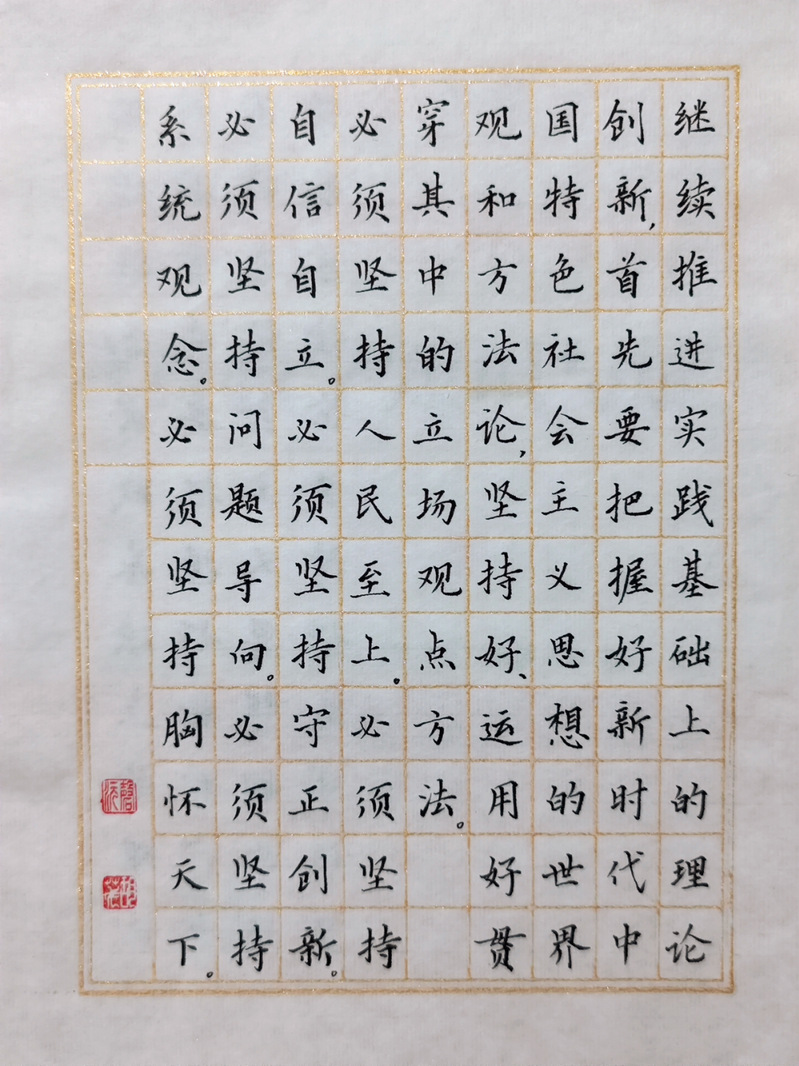 继续推进实践基础上的理论
创新,首先要把握好新时代中
国特色社会主义思想的世界
观和方法论,坚持好、运用好贯
穿其中的立场观点方法。
必须坚持人民至上。必须坚持
自信自立。必须坚持守正创新。
必须坚持问题导向。必须坚持
系统观念。必须坚持胸怀天下。